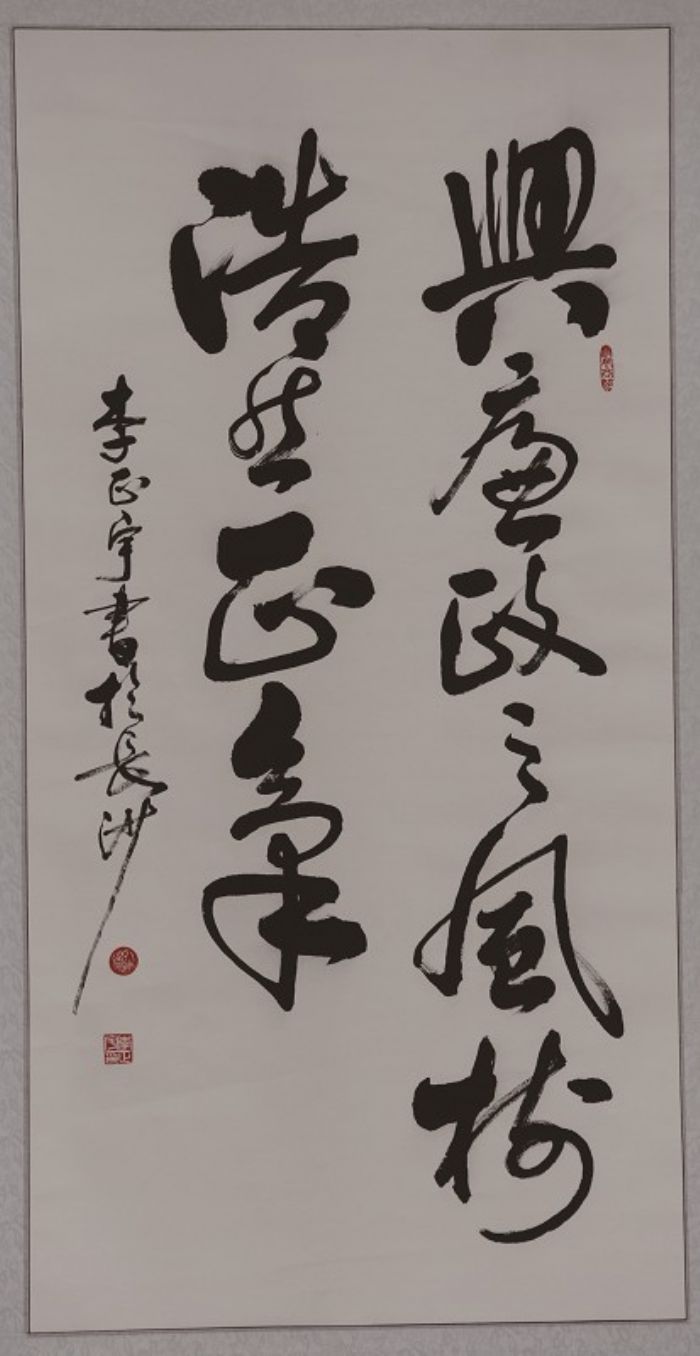 興廉政之風樹
浩然正氣
李正宇書於長沙